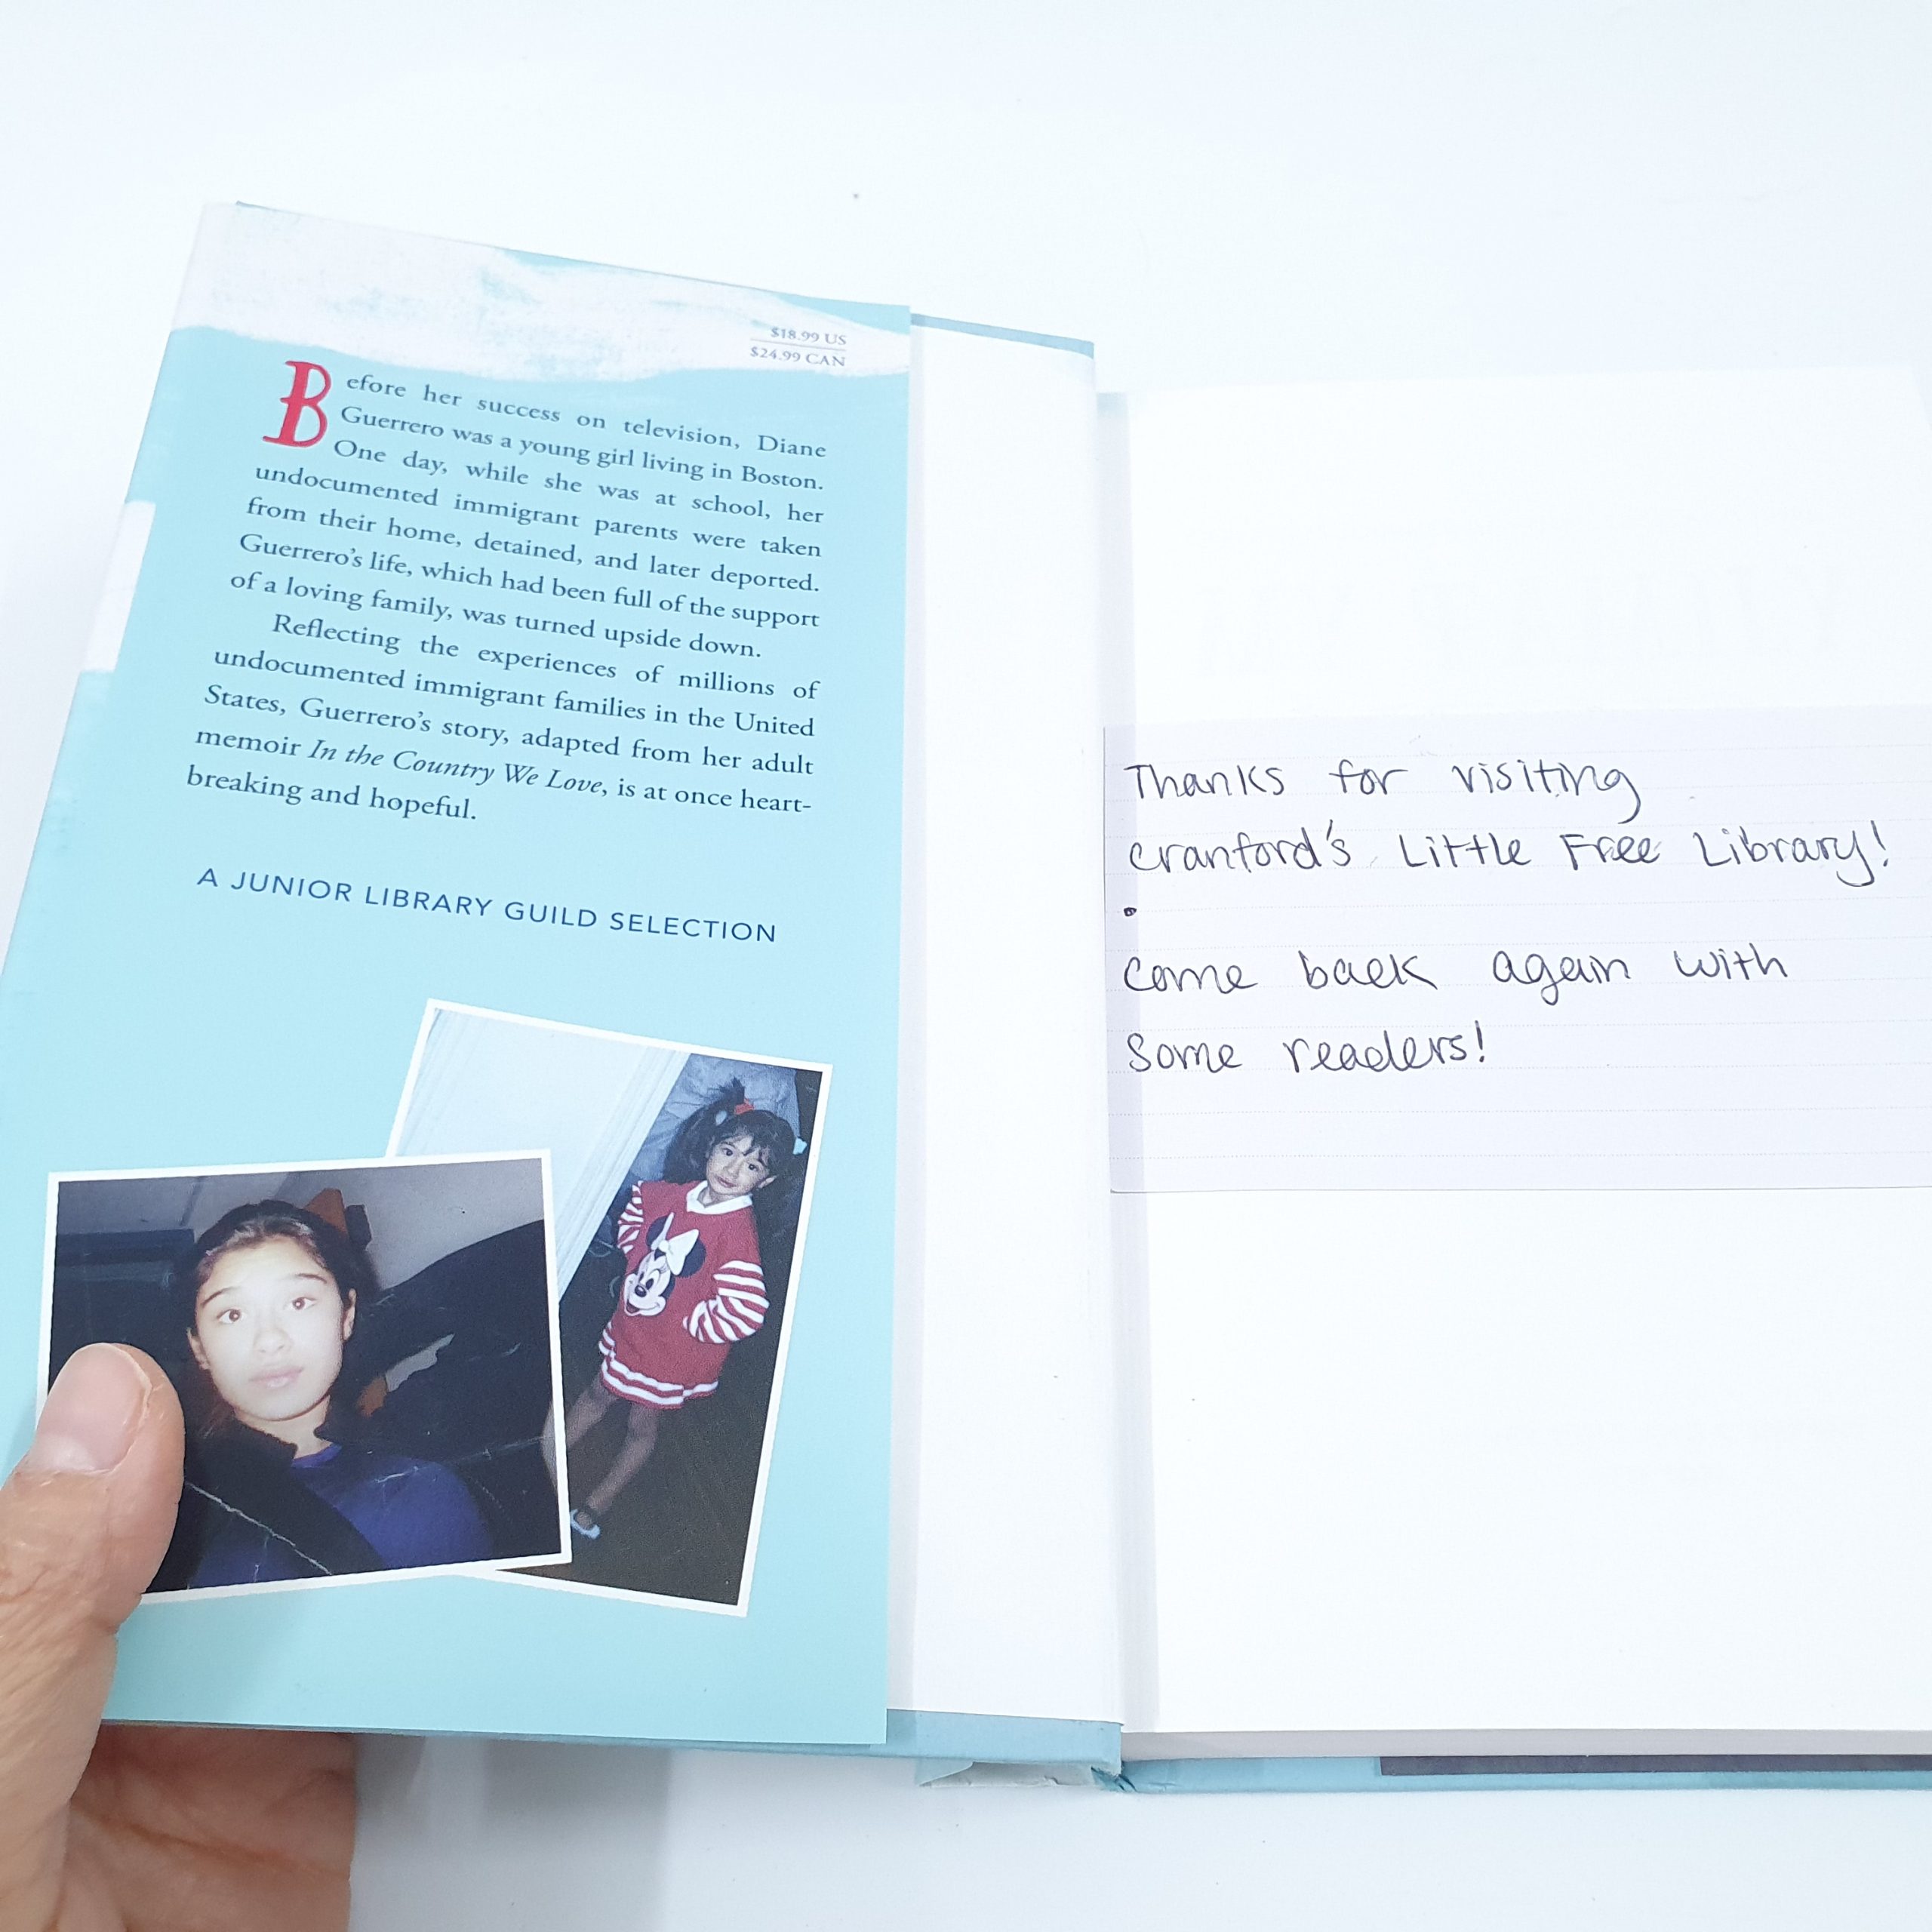 $18.99 US
$24.99 CAN
Before her success on television, Diane
Guerrero was a young girl living in Boston.
One day, while she was at school, her
undocumented immigrant parents were taken
from their home, detained, and later deported.
Guerrero's life, which had been full of the support
of a loving family, was turned upside down.
Reflecting the experiences of millions of
undocumented immigrant families in the United
States, Guerrero's story, adapted from her adult
memoir In the Country We Love, is at once heart-
breaking and hopeful.
A JUNIOR LIBRARY GUILD SELECTION
Thanks for visiting
Cranford's Little Free Library!
Come back again with
Some readers!